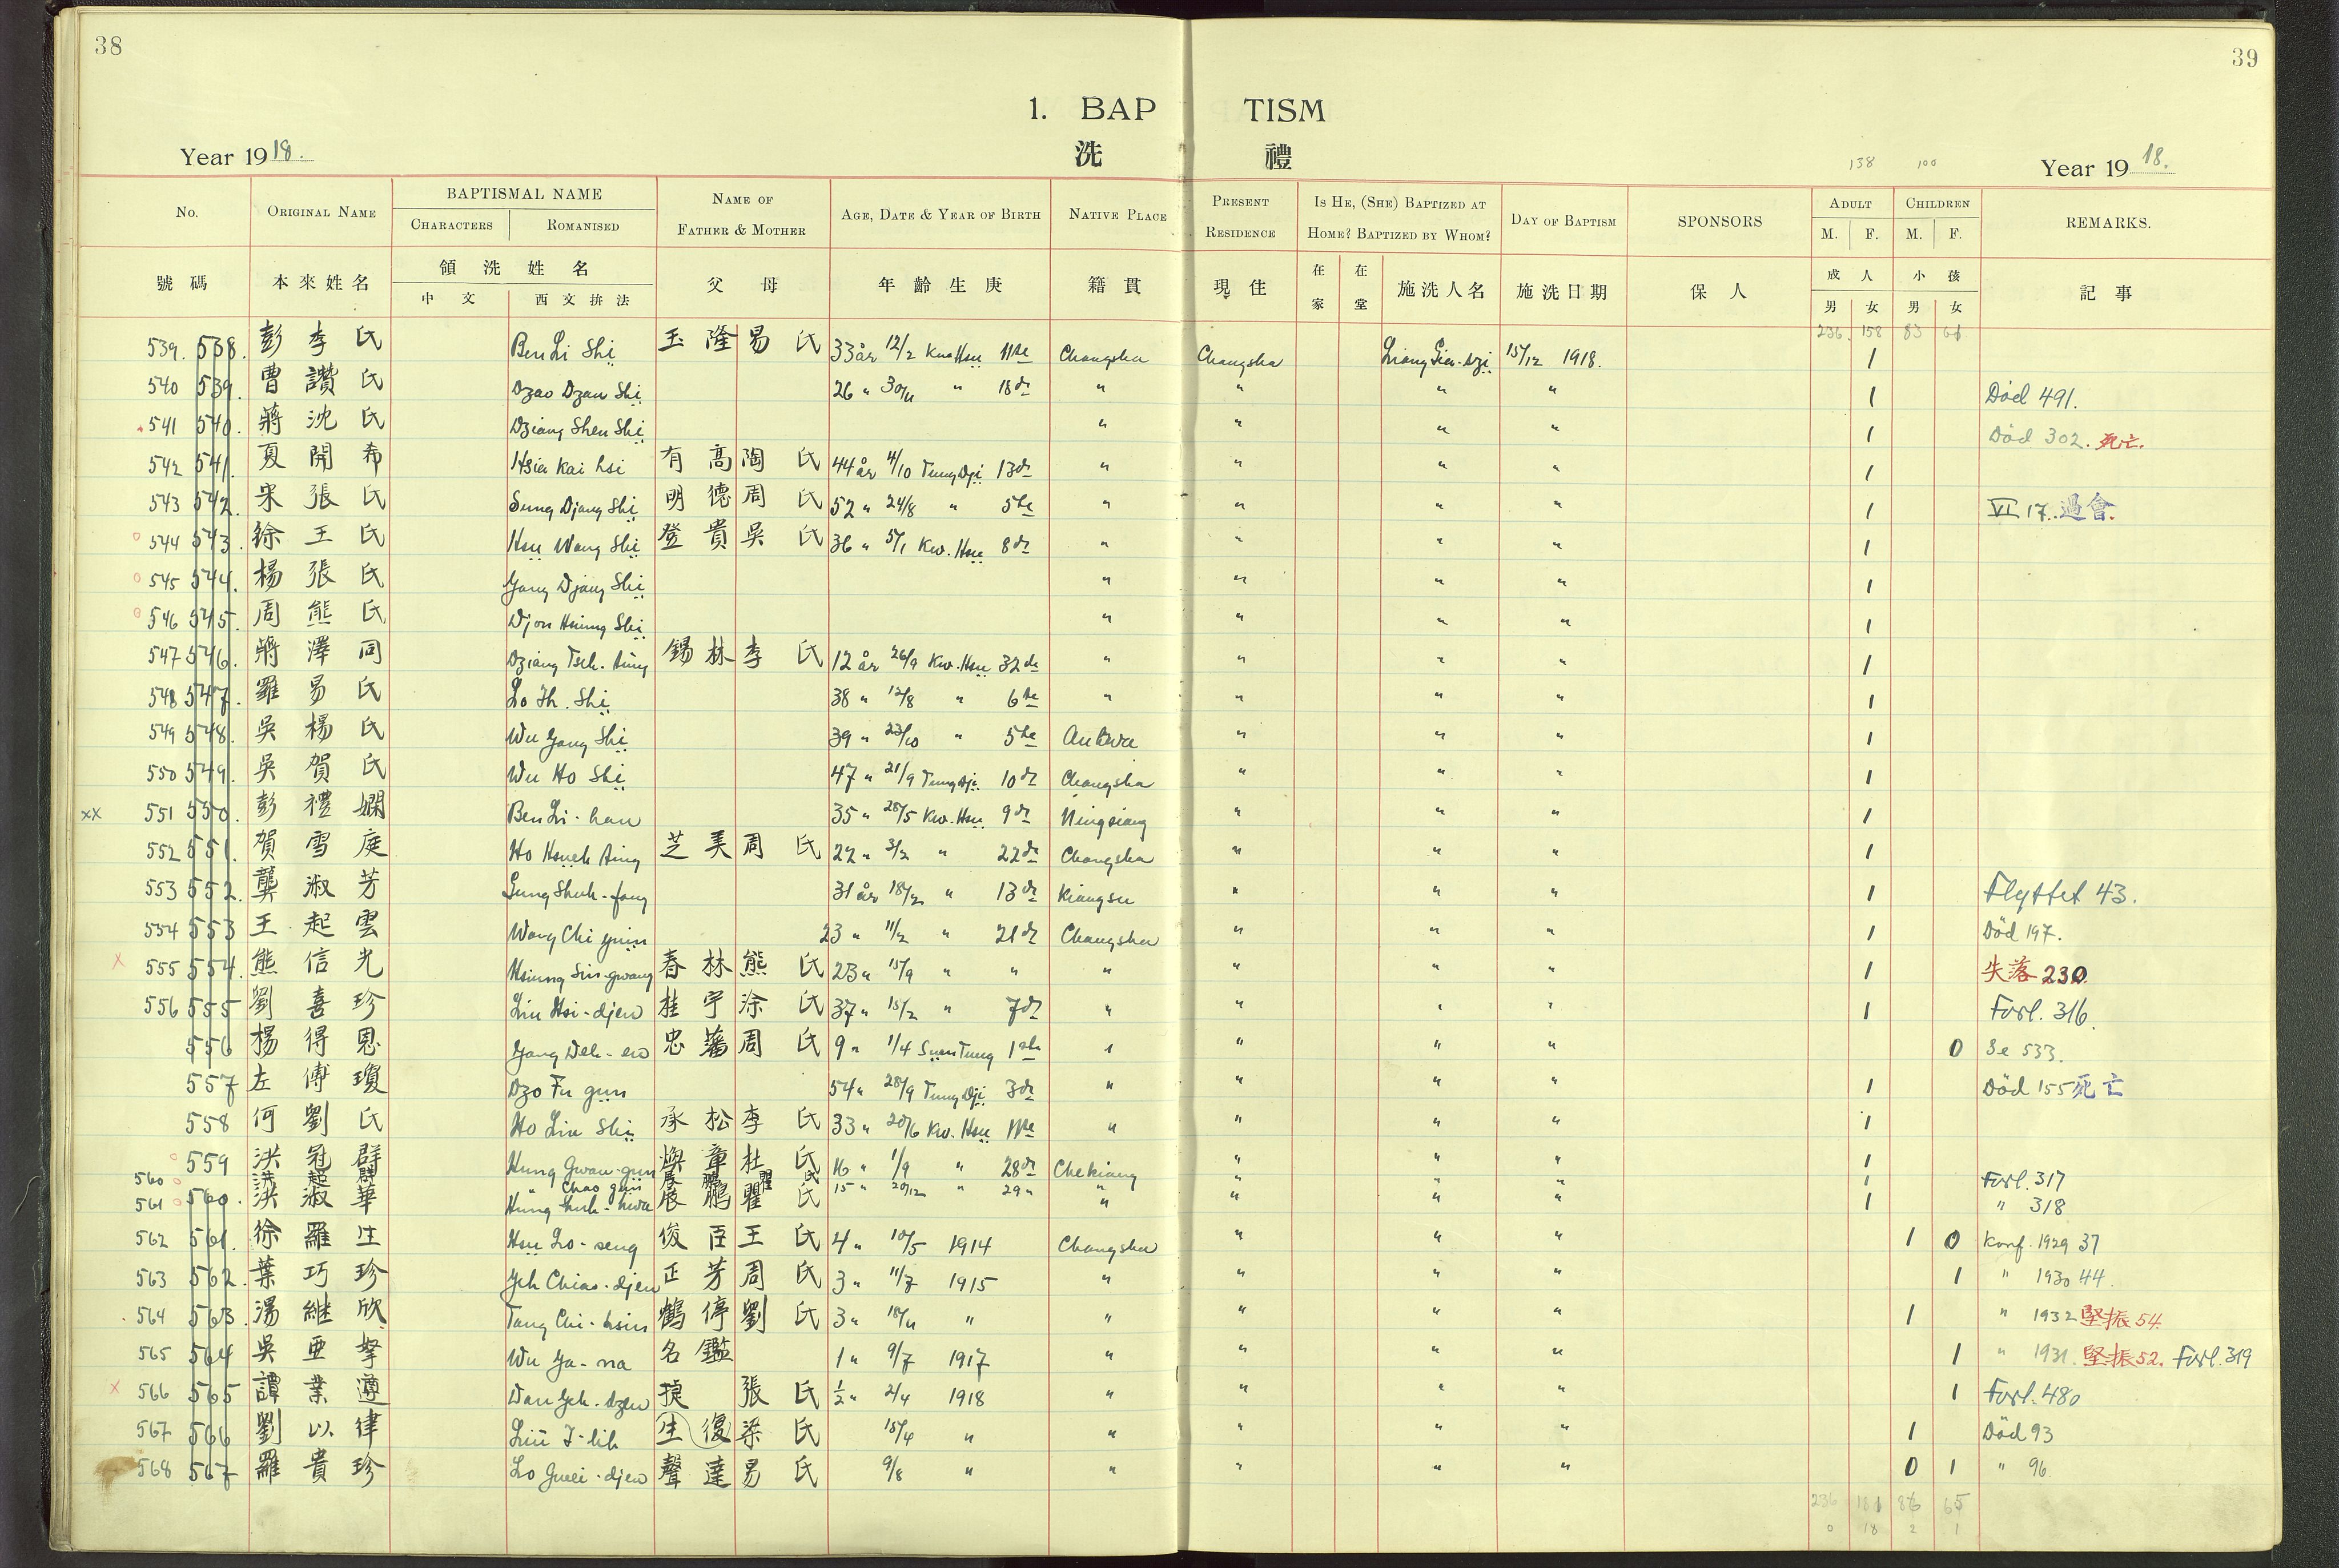 38
39
1. BAP TISM
Year 1918.
洗 禮
138 100
Year 1918.
No. ORIGINAL NAME BAPTISMAL NAME NAME OF FATHER & MOTHER AGE, DATE & YEAR OF BIRTH NATIVE PLACE PRESENT RESIDENCE IS HE, (SHE) BAPTIZED AT HOME? BAPTIZED BY WHOM? DAY OF BAPTISM SPONSORS ADULT CHILDREN REMARKS.
CHARACTERS ROMANISED M. F. M. F.
號碼 本來姓名 領洗姓名 父母 年齡生庚 籍貫 現住 在家 在堂 施洗人名 施洗日期 保人 成人 小孩 記事
中文 西文拚法 男 女 男 女
236 158 83 61
539. 538. 彭李氏 Ben Li Shi 玉隆 易氏 33 år 12/2 Kwa Hsu 11te Changsha Changsha 15/12 1918. 1
540 539. 曹讚氏 Dzao Dzan Shi 26 " 30/11 " 18de " " " " 1 Död 491.
541 540. 蔣沈氏 Dziang Shen Shi " " " " 1 Död 302. 死亡.
542 541. 夏開希 Hsia Kai hsi 有高 陶氏 44 år 4/10 Tung Dji 13de " " " " 1
543 542. 宋張氏 Sung Djang Shi 明德 周氏 52 " 24/8 " 5te " " " " 1 VI 17. 過會.
544 543. 徐王氏 Hsu Wang Shi 登貴 吳氏 36 " 5/1 Kw. Hsu 8de " " " " 1
545 544. 楊張氏 Yang Djang Shi " " " " 1
546 545. 周熊氏 Djou Hsiung Shi " " " " 1
547 546. 蔣澤同 Dziang Tseh-tung 錫林 李氏 12 år 26/9 Kw. Hsu 32de " " " " 1
548 547. 羅易氏 Lo Ih. Shi 38 " 12/8 " 6te " " " " 1
549 548. 吳楊氏 Wu Yang Shi 39 " 23/10 " 5te " " " 1
550 549. 吳賀氏 Wu Ho Shi 47 " 21/9 Tung dji 10de Changsha " " " 1
xx 551 550. 彭禮嫻 Ben Li-han 35 " 28/5 Kw. Hsu 9de Ningsiang " " " 1
552 551. 賀雪庭 Ho Hsueh ting 芝美 周氏 22 " 3/2 " 22de Changsha " " " 1
553 552. 龔淑芳 Gung Shuh-fang 31 år 18/12 " 13de Kiangsu " " " 1 Flyttet 43.
554 553 王起雲 Wang Chi yuin 23 " 11/2 " 21de Changsha " " " 1 Död 197.
x 555 554. 熊信光 Hsiung Sin-gwang 春林 熊氏 23 " 15/9 " " " " " " 1 失落 230.
556 555 劉喜珍 Liu Hsi-djen 桂宇 涂氏 37 " 15/2 " 7de " " " " 1 Forl. 316.
556 楊得恩 Yang Deh-en 忠藩 周氏 9 " 1/4 Suen Tung 1ste " " " " 0 Se 533.
557 左傅瓊 Dzo Fu gun 54 " 28/9 Tung Dji 3de " " " " 1 Död 155 死亡
558 何劉氏 Ho Liu Shi 承松 李氏 33 " 20/6 Kw. Hsu 11te " " " " 1
559 洪冠群 Hung Gwan-gun 煥章 杜氏 16 " 1/9 " 28de Chekiang " " " 1
560 洪超群 " Chao gun 展鵬 瞿氏 15 " 20/12 " 29 " " " " " 1 Forl. 317
561 560. 洪淑華 Hung Shuh-hwa 展鵬 瞿氏 " " " " 1 " 318
562 561. 徐羅生 Hsu Lo-seng 俊臣 王氏 4 " 10/5 1914 Changsha " " " 1 0 Konf. 1929 37
563 562. 葉巧珍 Yeh Chiao-djen 正芳 周氏 3 " 11/7 1915 " " " " 1 " 1930 44.
564 563. 湯繼欣 Tang Chi-hsin 鶴停 劉氏 3 " 18/11 " " " " " 1 " 1932 堅振 54.
565 564 吳亞拏 Wu Ya-na 名鑑 1 " 9/7 1917 " " " " 1 " 1931. 堅振 52. Forl. 319
x 566 565 譚業遵 Dan Yeh-dzun 張氏 1/2 " 2/4 1918 " " " " 1 Forl. 480
567 566 劉以律 Liu I-lih 生復 梁氏 15/4 " " " " " 1 Död 93
568 567 羅貴珍 Lo Guei-djen 聲達 易氏 9/8 " " " " " 0 1 " 96
236 181 86 65
0 18 2 1